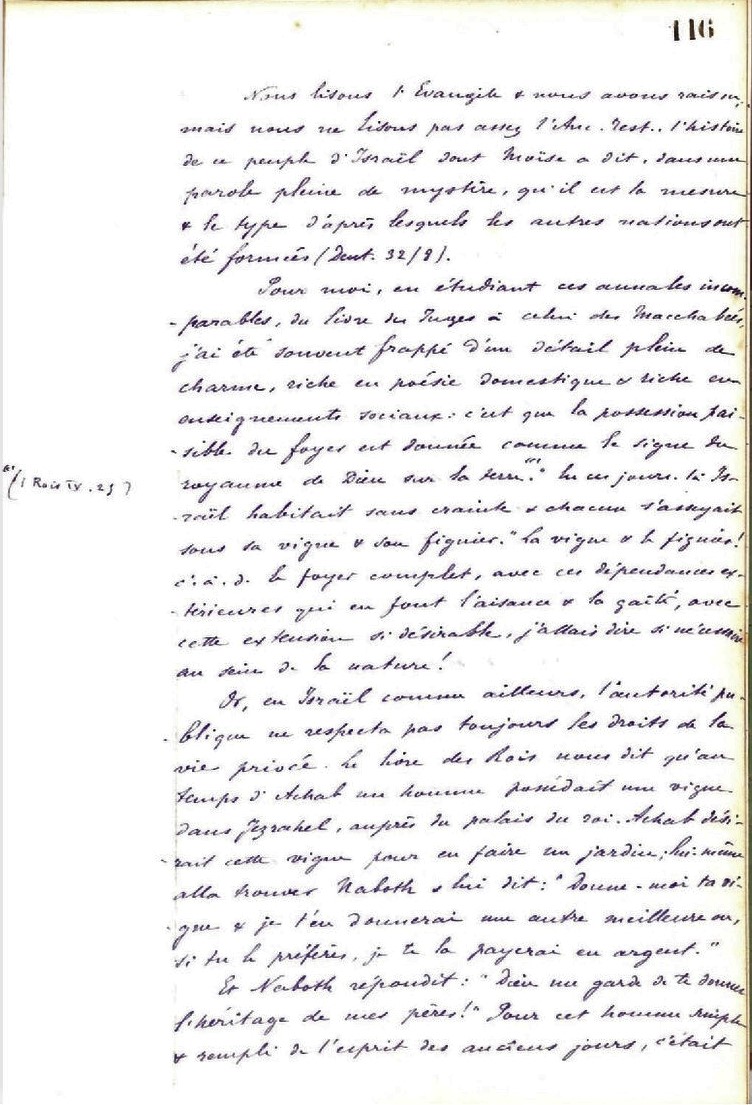 116
Nous lisons l'Evangile & nous avons raison,
mais nous ne lisons pas assez l'Anc. Test., l'histoire
de ce peuple d'Israël dont Moïse a dit, dans une
parole pleine de mystère, qu'il est la mesure
& le type d'après lesquels les autres nations ont
été formées (Deut. 32/8).
Pour moi, en étudiant ces annales incom-
-parables, du livre des Juges à celui des Macchabées,
j'ai été souvent frappé d'un détail plein de
charme, riche en poésie domestique & riche en
enseignements sociaux: c'est que la possession pai-
-sible du foyer est donnée comme le signe du
royaume de Dieu sur la terre.(1) " En ces jours-là Is-
(1) (1 Rois IV. 25)
-raël habitait sans crainte & chacun s'asseyait
sous sa vigne & son figuier." La vigne & le figuier!
c.à.d. le foyer complet, avec ces dépendances ex-
-térieures qui en font l'aisance & la gaîté, avec
cette extension si désirable, j'allais dire si nécessaire
au sein de la nature!
Or, en Israël comme ailleurs, l'autorité pu-
-blique ne respecta pas toujours les droits de la
vie privée. Le livre des Rois nous dit qu'au
temps d'Achab un homme possédait une vigne
dans Jezrahel, auprès du palais du roi. Achab dési-
-rait cette vigne pour en faire un jardin; lui-même
alla trouver Naboth & lui dit: " Donne-moi ta vi-
-gne & je t'en donnerai une autre meilleure ou,
si tu le préfères, je te la payerai en argent."
Et Naboth répondit: " Dieu me garde de te donner
l'héritage de mes pères!" Pour cet homme simple
& rempli de l'esprit des anciens jours, c'était